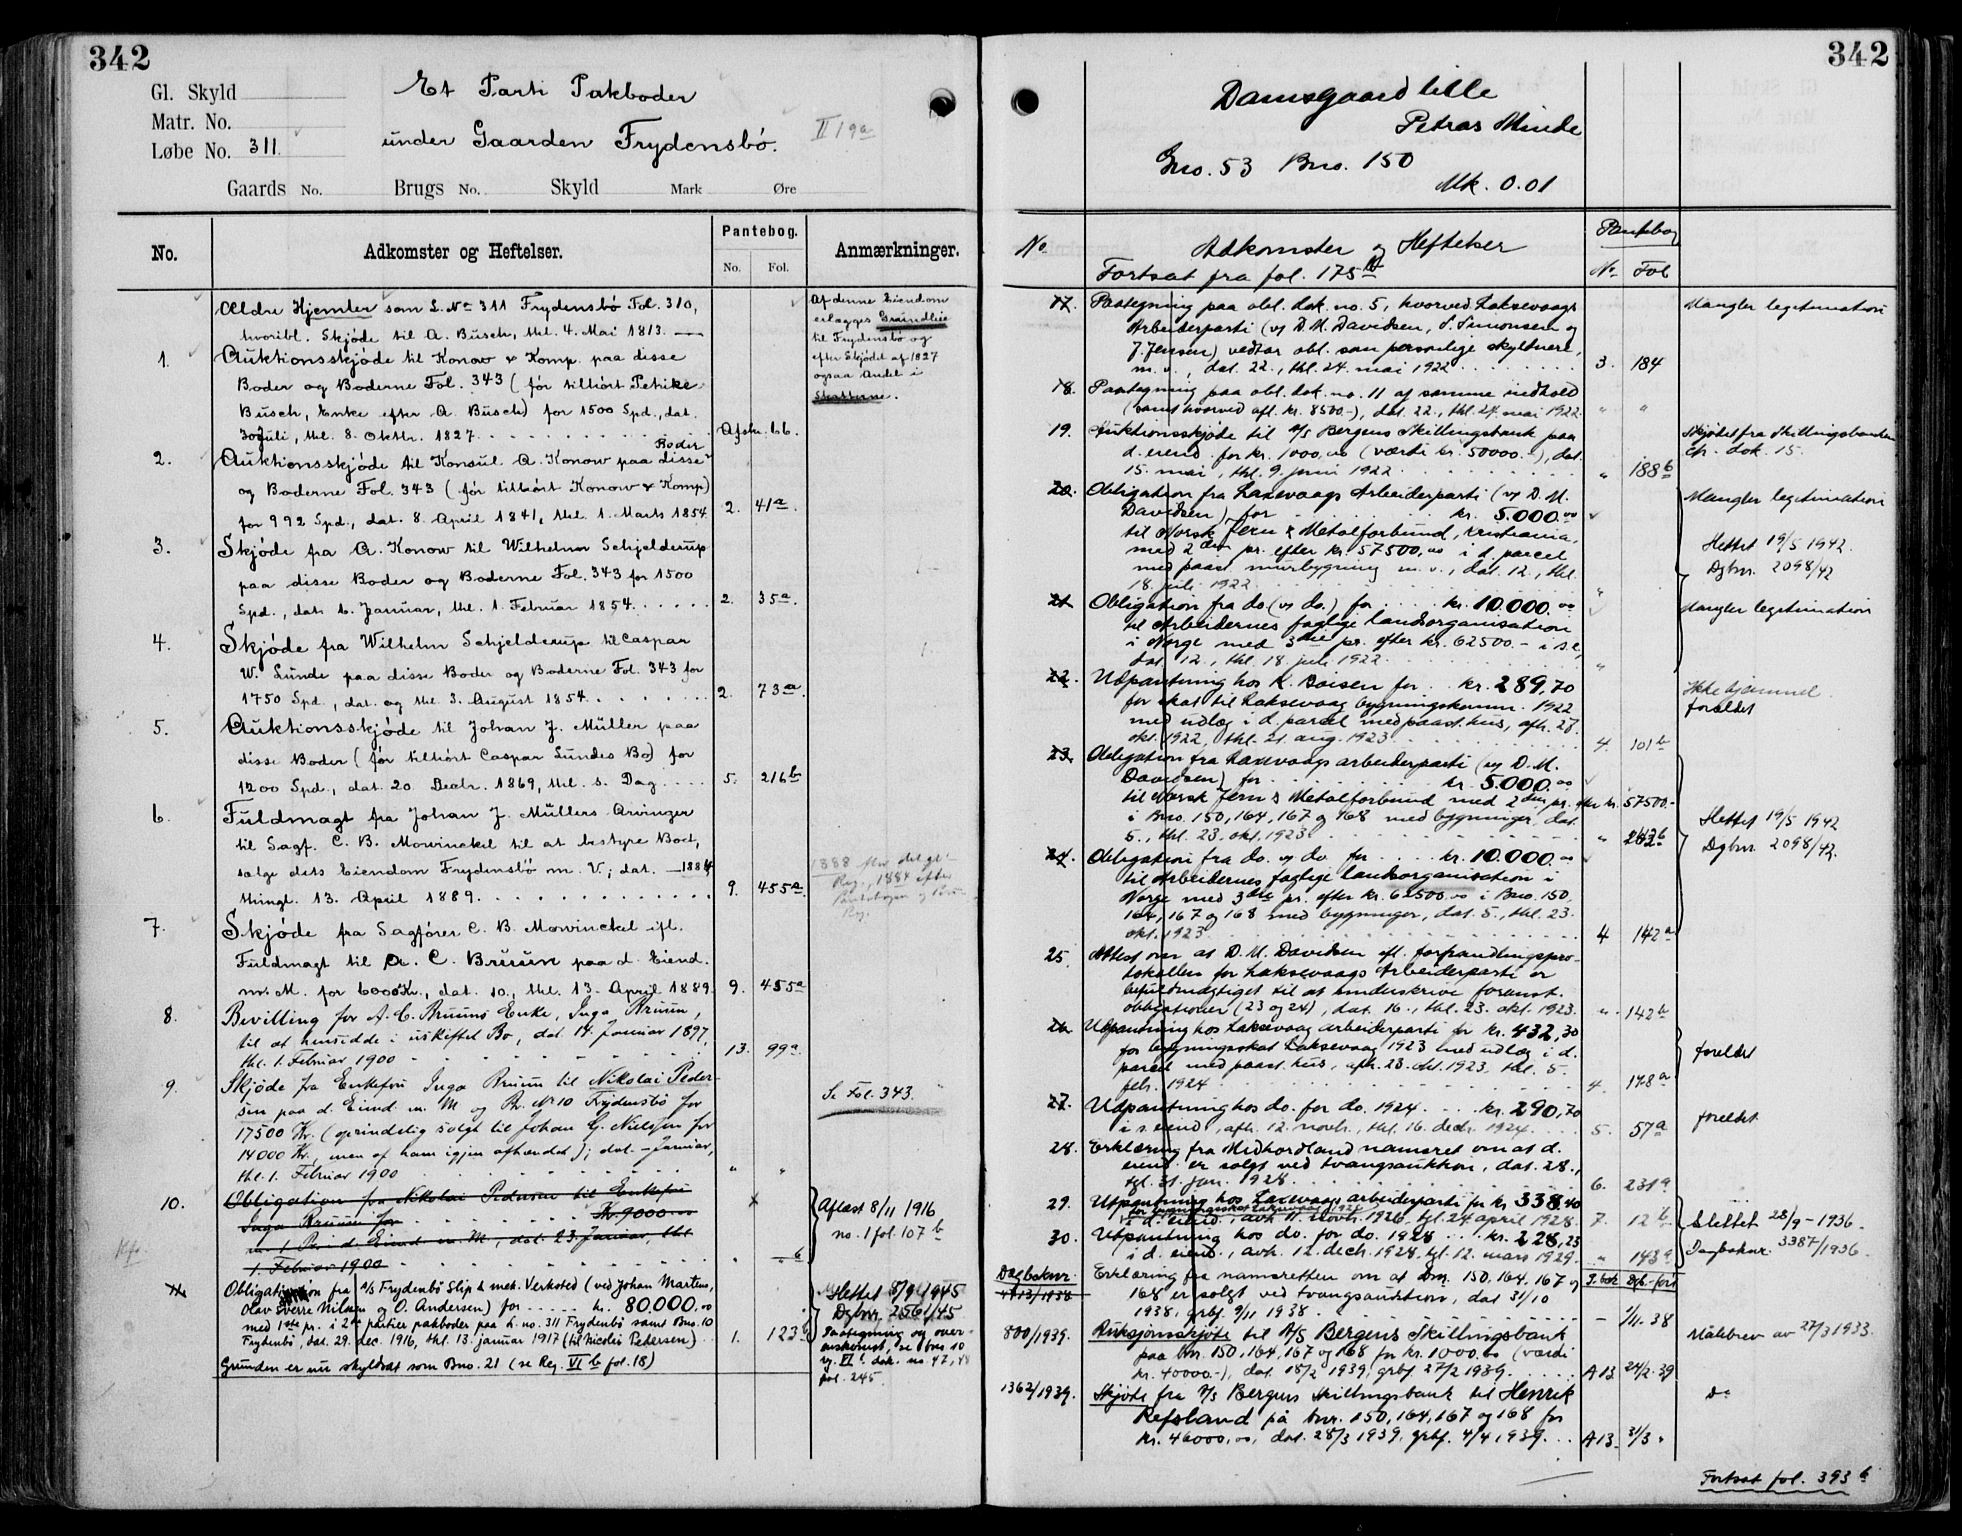 342
Gl. Skyld
Matr. No.
Løbe No. 311.
Et Parti Pakboder
under Gaarden Frydensbö.
II 19a
Gaards No. Brugs No. Skyld Mark Øre
No. Adkomster og Heftelser. Pantebog. Anmærkninger.
No. Fol.
Ældre Hjemler som L. No 311 Frydensbö Fol. 310,
hvoribl. Skjöde til A. Busch, thl. 4. Mai 1813.
Af denne Eiendom
erlægges Grundleie
til Frydensbø og
efter Skjödet af 1827
ogsaa Andel i
Skatterne.
1. Auktionsskjöde til Konow & Komp. paa disse
Boder og Boderne Fol. 343 (för tilhört Petrike
Busch, Enke efter A. Busch) for 1500 Spd., dat.
30 Juli, thl. 8. Oktbr. 1827. Afskr. 66.
2. Auktionsskjöde til Konsul A. Konow paa disse Boder
og Boderne Fol. 343 (för tilhört Konow & Komp)
for 992 Spd., dat. 8. April 1841, thl. 1. Marts 1854. 2. 41a.
3. Skjöde fra A. Konow til Wilhelm Schjelderup
paa disse Boder og Boderne Fol. 343 for 1500
Spd., dat. 6. Januar, thl. 1. Februar 1854. 2. 35a.
4. Skjöde fra Wilhelm Schjelderup til Caspar
W. Lunde paa disse Boder og Boderne Fol. 343 for
1750 Spd., dat. og thl. 3. August 1854. 2. 73a.
5. Auktionsskjöde til Johan J. Müller paa
disse Boder (för tilhört Caspar Lundes Bo) for
1200 Spd., dat. 20. Decbr. 1869, thl. s. Dag. 5. 216b
6. Fuldmagt fra Johan J. Müllers Arvinger
til Sagf. C. B. Mowinckel til at bestyre Boet,
sælge dets Eiendom Frydensbö m. V.; dat. — 1884
thingl. 13. April 1889. 9. 455a
7. Skjöde fra Sagförer C. B. Mowinckel ifl.
Fuldmagt til A. C. Bruun paa d. Eiend.
m. M. for 6000 Kr., dat. 10., thl. 13. April 1889. 9. 455a
8. Bevilling for A. C. Bruuns Enke, Inga Bruun,
til at hensidde i uskiftet Bo, dat. 14. Januar 1897,
thl. 1. Februar 1900 13. 99a.
9. Skjöde fra Enkefru Inga Bruun til Nikolai Peder-
sen paa d. Eiend. m. M. og Br. No 10 Frydensbö for
17500 Kr. (oprindelig solgt til Johan G. Nielsen for
14000 Kr., men af ham igjen afhændet); dat. - Januar,
thl. 1. Februar 1900 " "
Se Fol. 343.
10. Obligation fra Nikolai Pedersen til Enkefru
Inga Bruun for Kr. 9000
m. 1 Pr. i d. Eiend. m. M., dat. 23. Januar, thl.
1. Februar 1900 " b
Aflæst 8/11 1916
no. 1 fol. 107 b
11. Obligation fra A/S Frydenbö Slip & mek. Verksted (ved Johan Martens,
Olav Sverre Nilsen og O. Andersen) for kr. 80,000.00
med 1ste pr. i 2de partier pakboder paa L. no. 311 Frydenbö samt Bno. 10
Frydenbö, dat. 29. dec. 1916, thl. 13. januar 1917 (til Nicolai Pedersen) 1. 123b
Grunden er nu skyldsat som Bno. 21 (se Reg. VI b fol. 18)
Slettet 8/9 1945
Dgbnr. 2561/45
Paategning og over-
enskomst, se bno 10
og VI b. dok. no. 47, 48
fol. 245.
342
Damsgaard lille
Petras Minde
Gno. 53 Bno. 150
Mk. 0.01
No Adkomster og Heftelser Pantebog
Fortsat fra fol. 175 b No Fol
17. Paategning paa obl. dok. no. 5, hvorved Laksevaags
Arbeiderparti (v/ D. M. Davidsen, S. Simonsen og
J. Jensen) vedtar obl. som personlige skyldnere,
m. v., dat. 22., thl. 24. mai 1922 3. 184
Mangler legitimation
18. Paategning paa obl. dok. no. 11 af samme indhold
(samt hvorved afl. kr. 8500.-), dat. 22., thl. 24. mai 1922. " "
19. Auktionsskjøde til A/S Bergens Skillingsbank paa
d. eiend. for kr. 1000,00 (værdi kr. 50000.-), dat.
15. mai, thl. 9. juni 1922. " 188b
Skjødet fra Skillingsbanken
cfr. dok. 15.
20. Obligation fra Laxevaags Arbeiderparti (v/ D. M.
Davidsen) for kr. 5.000.00
til Norsk Jern & Metalforbund, Kristiania,
med 2den pr. efter kr. 57500,00 i d. parcel
med paast. murbygning m. v., dat. 12., thl.
18. juli 1922 "
Mangler legitimation
Slettet 19/5 1942.
Dgbnr. 2098/42
21. Obligation fra do (v/ do.) for kr. 10.000.00
til Arbeidernes faglige landsorganisation
i Norge med 3die pr. efter kr. 62500.- i s. e.,
dat. 12., thl. 18. juli 1922. "
Mangler legitimation
22. Utpantning hos K. Boisen for kr. 289,70
for skat til Laksevaag bygningskomm. 1922
med udlæg i d. parcel med paast. hus, afh. 27.
okt. 1922, thl. 21. aug. 1923. 4. 101b
Ikke hjemmel.
forældet
23. Obligation fra Laxevaags arbeiderparti (v/ D. M.
Davidsen) for kr. 5.000.00
til Norsk Jern & Metalforbund med 2den pr. efter kr. 57500.-
i Bno. 150, 164, 167 og 168 med bygninger, dat.
5., thl. 23. okt. 1923.
Slettet 19/5 1942
Dgbnr. 2098/42.
24. Obligation fra do. v/ do. for kr. 10.000.00
til Arbeidernes faglige landsorganisation i
Norge med 3die pr. efter kr. 62500.00 i Bno. 150,
164, 167 og 168 med bygninger, dat. 5., thl. 23.
okt. 1923 4 142a
25. Attest om at D. M. Davidsen ifl. forhandlingspro-
tokollen for Laksevaags Arbeiderparti er
befuldmægtiget til at underskrive foranst.
obligationer (23 og 24), dat. 16., thl. 23. okt. 1923. " 142b
26. Udpantning hos Laksevaag arbeiderparti for kr. 432,30
for bygningsskat Laksevaag 1923 med udlæg i d.
parcel med paast. hus, afh. 23. okt. 1923, thl. 5.
febr. 1924 4. 178a
forældet
27. Udpantning hos do. for do. 1924 kr. 290,70
i s. eiend., afh. 12. novbr., thl. 16. decbr. 1924. 5. 57a
forældet
28. Erklæring fra Midhordland namsret om at d.
eiend. er solgt ved tvangsauktion, dat. 28.,
tgl. 31. jan. 1928. 6. 231a
29. Utpantning hos Laxevaags arbeiderparti for kr. 338,40
for bygningsskat Laksevaag 1926
i d. eiend., avh. 11. novbr. 1926, tgl. 24 april 1928. 7. 12b
Slettet 28/9-1936.
Dagboknr. 3387/1936.
30. Utpantning hos do. for do. 1928 kr. 228,23
i d. eiend., avh. 12. decb. 1928, tgl. 12. mars 1929. " 143a
Dagboknr. 4713/1938
Erklæring fra namsretten om at bnr. 150, 164, 167 og
168 er solgt ved tvangsauktion, dat. 31/10
1938, grbf. 9/11 1938.
P. bok Dgb.-ført
- 9/11. 38
800/1939. Auksjonsskjöte til A/S Bergens Skillingsbank
paa bnr. 150, 164, 167 og 168 for kr. 1000.00 (værdi
kr. 40000.-), dat. 18/2 1939, grbf. 27/2 1939. A 13 24/2. 39
Målebrev av 27/3 1933.
1362/1939. Skjöte fra A/S Bergens Skillingsbank til Henrik
Refsland på bnr. 150, 164, 167 og 168 for
kr. 46000,00, dat. 28/3 1939, grbf. 4/4 1939. A 13. 31/3 "
Do
Fortsat fol. 393 b